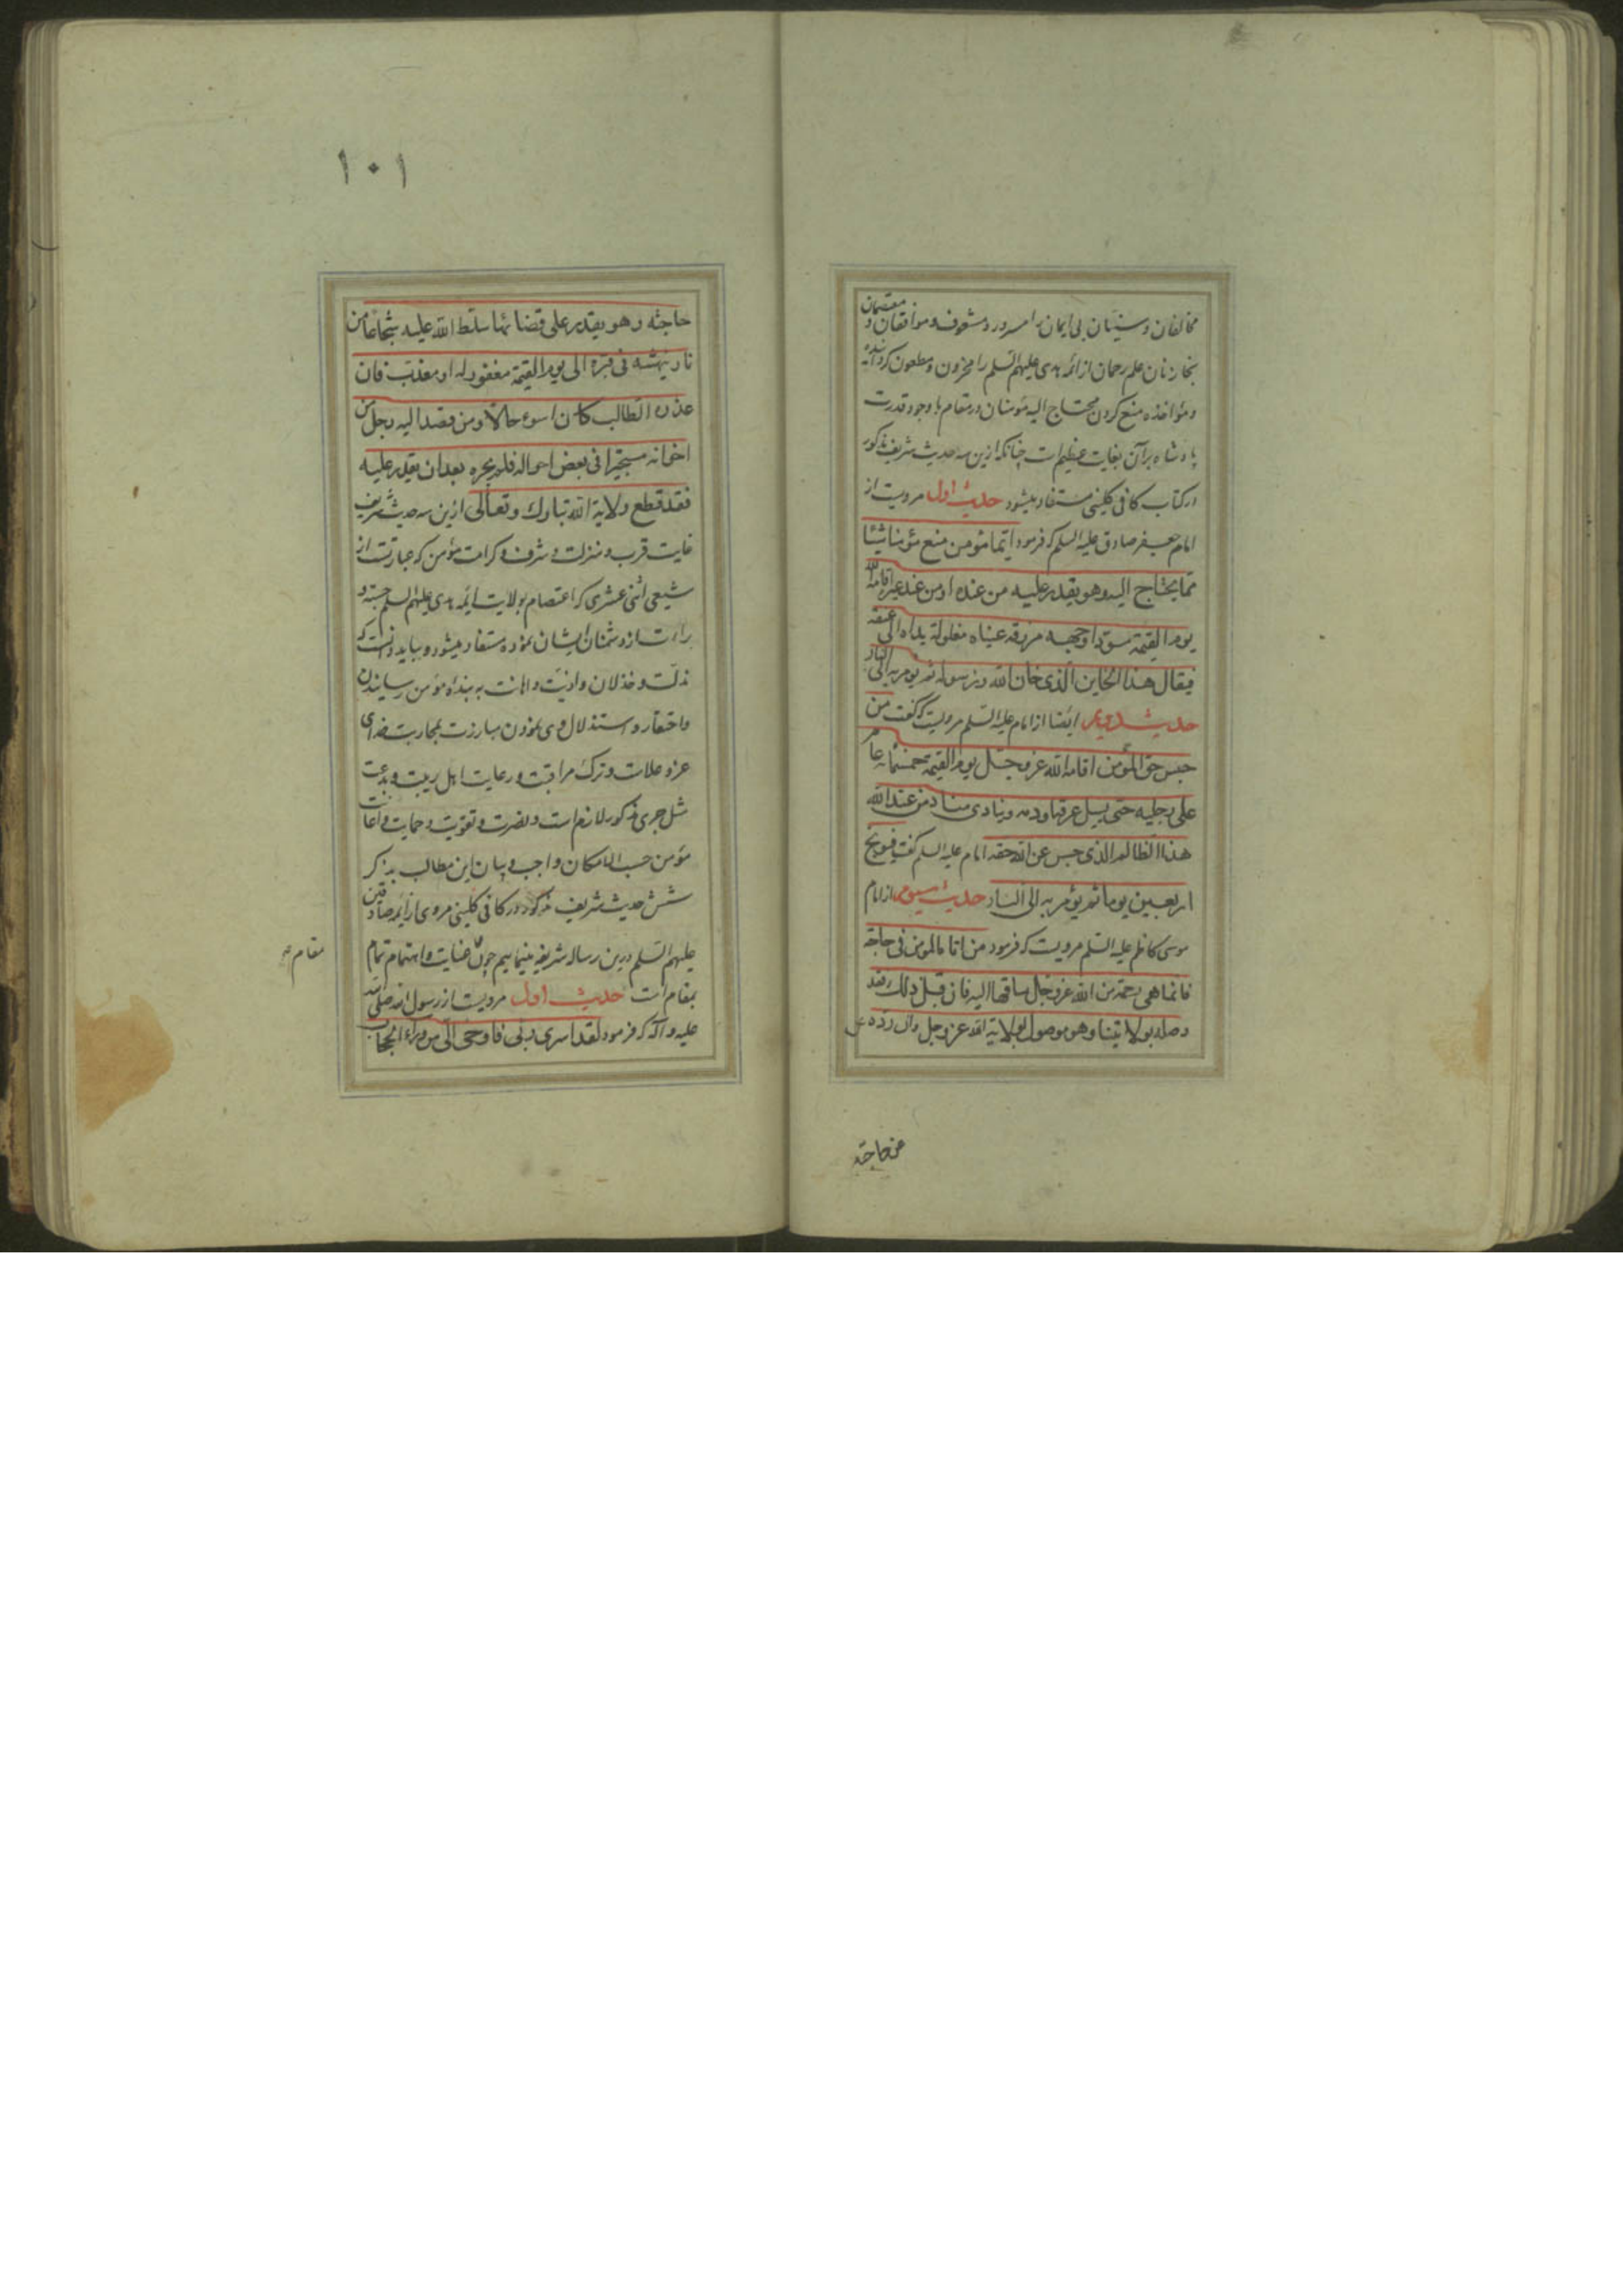 مخالفان و سنیان بی ایمان را مسرور و مشعوف و موافقان و معتصمان
بخازنان علم رحمان از ائمه هدی علیهم السلم را محزون و مطعون گردانیده
و مؤاخذه منع کردن محتاج الیه مؤمنان در مقام با وجود قدرت
پادشاه بر آن بغایت عظیم است چنانکه ازین سه حدیث شریف مذکور
از کتاب کافی کلینی مستفاد میشود حدیث اول مرویست از
امام جعفر صادق علیه السلم که فرمود ایما مؤمن منع مؤمنا شیئا
مما یحتاج الیه وهو یقدر علیه من عنده او من عند غیره اقامه الله
یوم القیمة مسودا وجهه مزرقه عیناه مغلولة یداه الی عنقه
فیقال هذا الخاین الذی خان الله ورسوله ثم یؤمر به الی النار
حدیث دویم ایضا از امام علیه السلم مرویست که گفت من
حبس حق المؤمن اقامه الله عز وجل یوم القیمة خمسمائة عام
علی رجلیه حتی یسیل عرقه او دمه وینادی مناد من عند الله
هذا الظالم الذی حبس عن الله حقه امام علیه السلم گفت فیوبخ
اربعین یوما ثم یؤمر به الی النار حدیث سیوم از امام
موسی کاظم علیه السلم مرویست که فرمود من اتاه المؤمن فی حاجة
فانما هی رحمة من الله عز وجل ساقها الیه فان قبل ذلک فقد
وصله بولایتنا وهو موصول بولایة الله عز وجل وان رده عن
عن حاجته
۱۰۱
حاجته وهو یقدر علی قضائها سلط الله علیه شجاعا من
نار ینهشه فی قبره الی یوم القیمة مغفور له او معذب فان
عذره الطالب کان اسوء حالا ومن قصد الیه رجل من
اخوانه مستجیرا فی بعض احواله فلم یجره بعد ان یقدر علیه
فقد قطع ولایة الله تبارک وتعالی ازین سه حدیث شریف
غایت قرب و منزلت و شرف و کرامت مؤمن که عبارتست از
شیعی اثنی عشری که اعتصام بولایت ائمه هدی علیهم السلم جسته و
براءت از دشمنان ایشان نموده مستفاد میشود و بباید دانست که
مذلت و خذلان و اذیت و اهانت به بنداه مؤمن رسانیدن
و احتقار و استذلال وی نمودن مبارزت بمحاربت خدای
عز و علاست و ترک مراقبت و رعایت اهل ریبت و بدعت
مثل جری مذکور لازم است و نصرت و تقویت و حمایت و اعانت
مؤمن حسب الامکان واجب و بیان این مطالب بذکر
شش حدیث شریف مذکور در کافی کلینی مروی از ائمه صادقین
علیهم السلم درین رساله شریفه مینماییم چون عنایت و اهتمام تمام
مقام
بمقام است حدیث اول مرویست از رسول الله صلی الله
علیه و آله که فرمود لقد اسری ربی فاوحی الی من وراء الحجاب